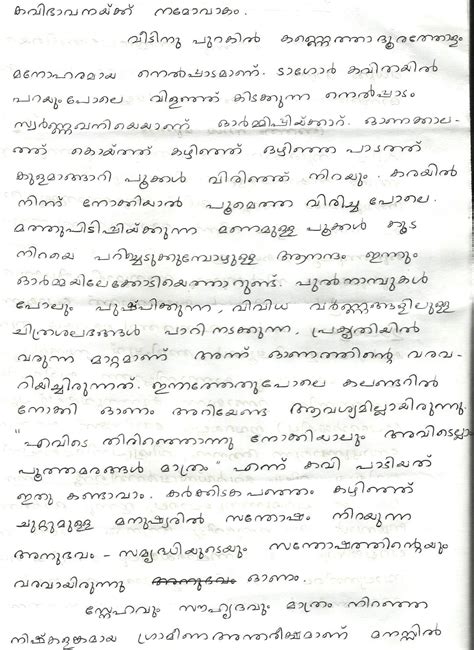 കവിഭാവനയ്ക്ക് നമോവാകം.
വീടിനു പുറകിൽ കണ്ണെത്താദൂരത്തോളം
മനോഹരമായ നെൽപ്പാടമാണ്. ടാഗോർ കവിതയിൽ
പറയുംപോലെ വിളഞ്ഞ് കിടക്കുന്ന നെൽപ്പാടം
സ്വർണ്ണഖനിയെയാണ് ഓർമ്മിപ്പിയ്ക്കാറ്. ഓണക്കാല-
ത്ത് കൊയ്ത്ത് കഴിഞ്ഞ് ഒഴിഞ്ഞ പാടത്ത്
കുളമാങ്ങാറി പൂക്കൾ വിരിഞ്ഞ് നിറയും. കരയിൽ
നിന്ന് നോക്കിയാൽ പൂമെത്ത വിരിച്ച പോലെ.
മത്തുപിടിപ്പിയ്ക്കുന്ന മണമുള്ള പൂക്കൾ കൂട
നിറയെ പറിച്ചെടുക്കുമ്പോഴുള്ള ആനന്ദം ഇന്നും
ഓർമ്മയിലേക്കോടിയെത്താറുണ്ട്. പുൽനാമ്പുകൾ
പോലും പുഷ്പിക്കുന്ന, വിവിധ വർണ്ണങ്ങളിലുള്ള
ചിത്രശലഭങ്ങൾ പാറി നടക്കുന്ന, പ്രകൃതിയിൽ
വരുന്ന മാറ്റമാണ് അന്ന് ഓണത്തിന്റെ വരവ-
റിയിച്ചിരുന്നത്. ഇന്നത്തേതുപോലെ കലണ്ടറിൽ
നോക്കി ഓണം അറിയേണ്ട ആവശ്യമില്ലായിരുന്നു.
"എവിടെ തിരിഞ്ഞൊന്നു നോക്കിയാലും അവിടെല്ലാം
പൂത്തമരങ്ങൾ മാത്രം" എന്ന് കവി പാടിയത്
ഇതു കണ്ടാവാം. കർക്കിടകപഞ്ഞം കഴിഞ്ഞ്
ചുറ്റുമുള്ള മനുഷ്യരിൽ സന്തോഷം നിറയുന്ന
അനുഭവം - സമൃദ്ധിയുടെയും സന്തോഷത്തിന്റെയും
വരവായിരുന്നു അനുഭവം ഓണം.
സ്നേഹവും സൗഹൃദവും മാത്രം നിറഞ്ഞ
നിഷ്കളങ്കമായ ഗ്രാമീണ അന്തരീക്ഷമാണ് മനസ്സിൽ